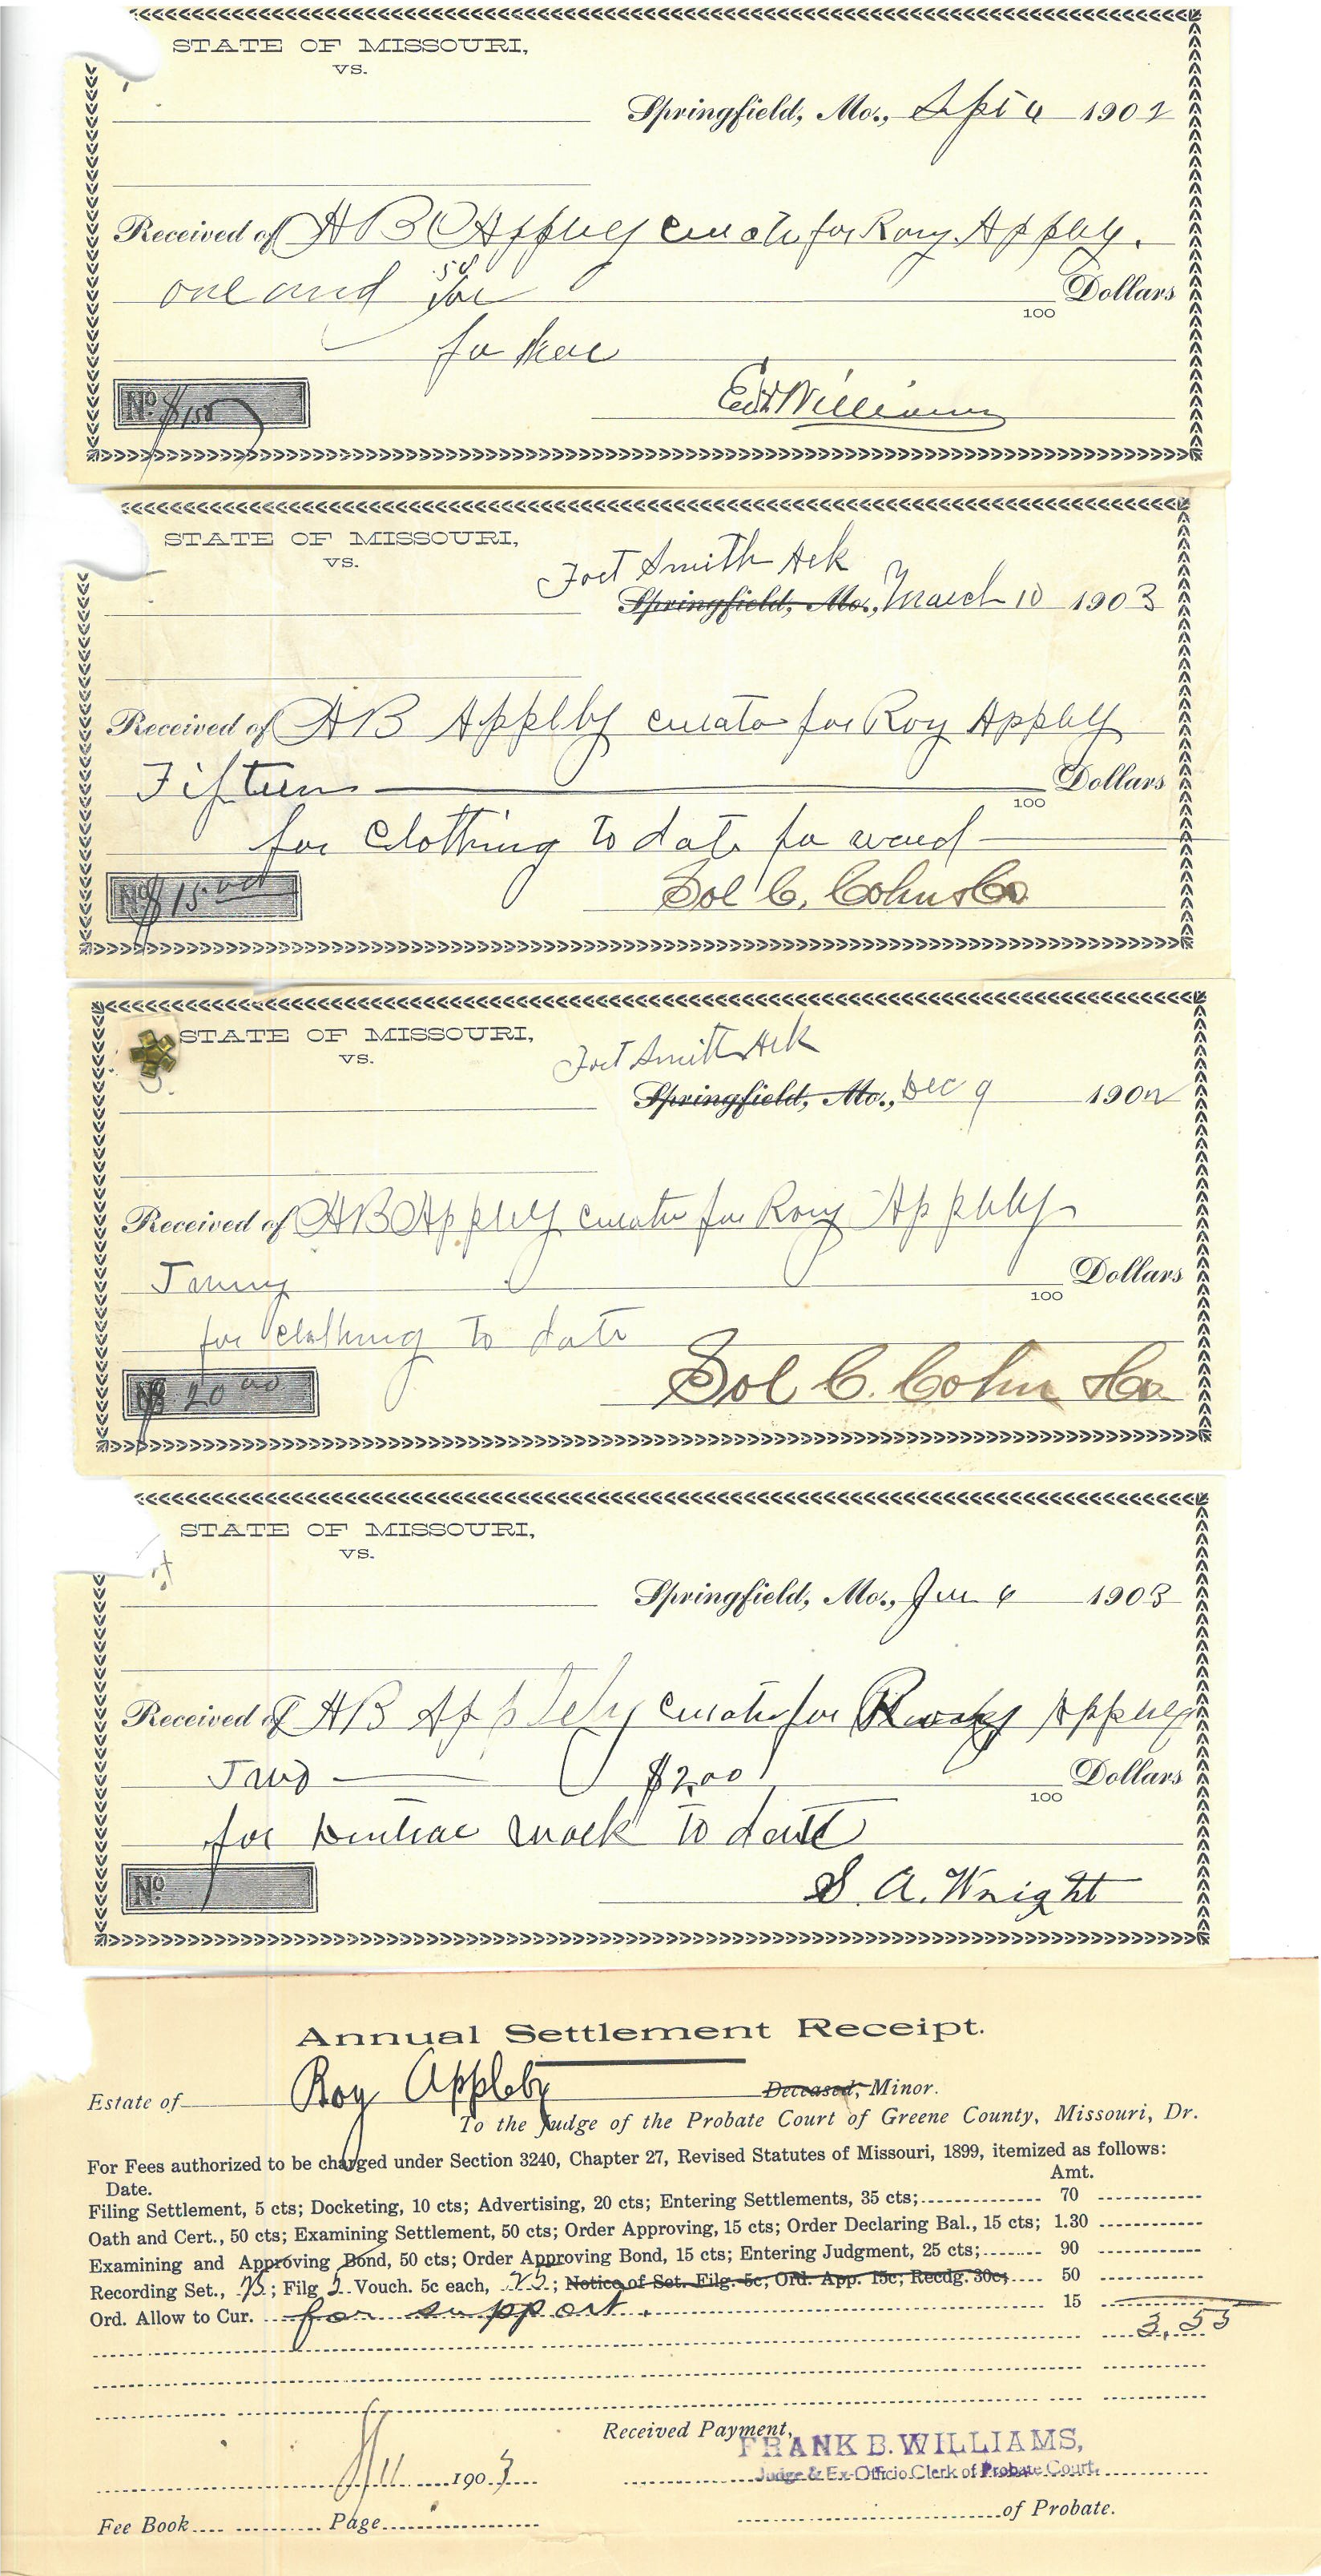 STATE OF MISSOURI,
VS.
Springfield, Mo., Sept 6 1902
Received of H B Appleby curator for Roy Appleby.
one and 50/100 Dollars
100
for
No. $1.50
Williams
STATE OF MISSOURI,
VS.
Fort Smith Ark
Springfield, Mo., March 10 1903
Received of H B Appleby curator for Roy Appleby
Fifteen Dollars
100
for Clothing to date for ward
No. $15.00
Sol C. Cohn & Co
STATE OF MISSOURI,
VS.
Fort Smith Ark
Springfield, Mo., Dec 9 1902
Received of H B Appleby curator for Roy Appleby
Dollars
100
for clothing to date
No. $20.00
Sol C. Cohn & Co.
STATE OF MISSOURI,
VS.
Springfield, Mo., 6 1903
Received of H B Appleby curator for Roy Appleby
Two $2.00 Dollars
100
for Dental work to date
No.
S. A. Wright
Annual Settlement Receipt.
Estate of Roy Appleby Deceased, Minor.
To the Judge of the Probate Court of Greene County, Missouri, Dr.
For Fees authorized to be charged under Section 3240, Chapter 27, Revised Statutes of Missouri, 1899, itemized as follows:
Date. Amt.
Filing Settlement, 5 cts; Docketing, 10 cts; Advertising, 20 cts; Entering Settlements, 35 cts; 70
Oath and Cert., 50 cts; Examining Settlement, 50 cts; Order Approving, 15 cts; Order Declaring Bal., 15 cts; 1.30
Examining and Approving Bond, 50 cts; Order Approving Bond, 15 cts; Entering Judgment, 25 cts; 90
Recording Set., ; Filg 5 Vouch. 5c each, 25; Notice of Set. Filg. 5c; Ord. App. 15c; Recdg. 30c; 50
Ord. Allow to Cur. for support. 15
3.55
Received Payment,
FRANK B. WILLIAMS,
Judge & Ex-Officio Clerk of Probate Court.
11 1903
of Probate.
Fee Book Page